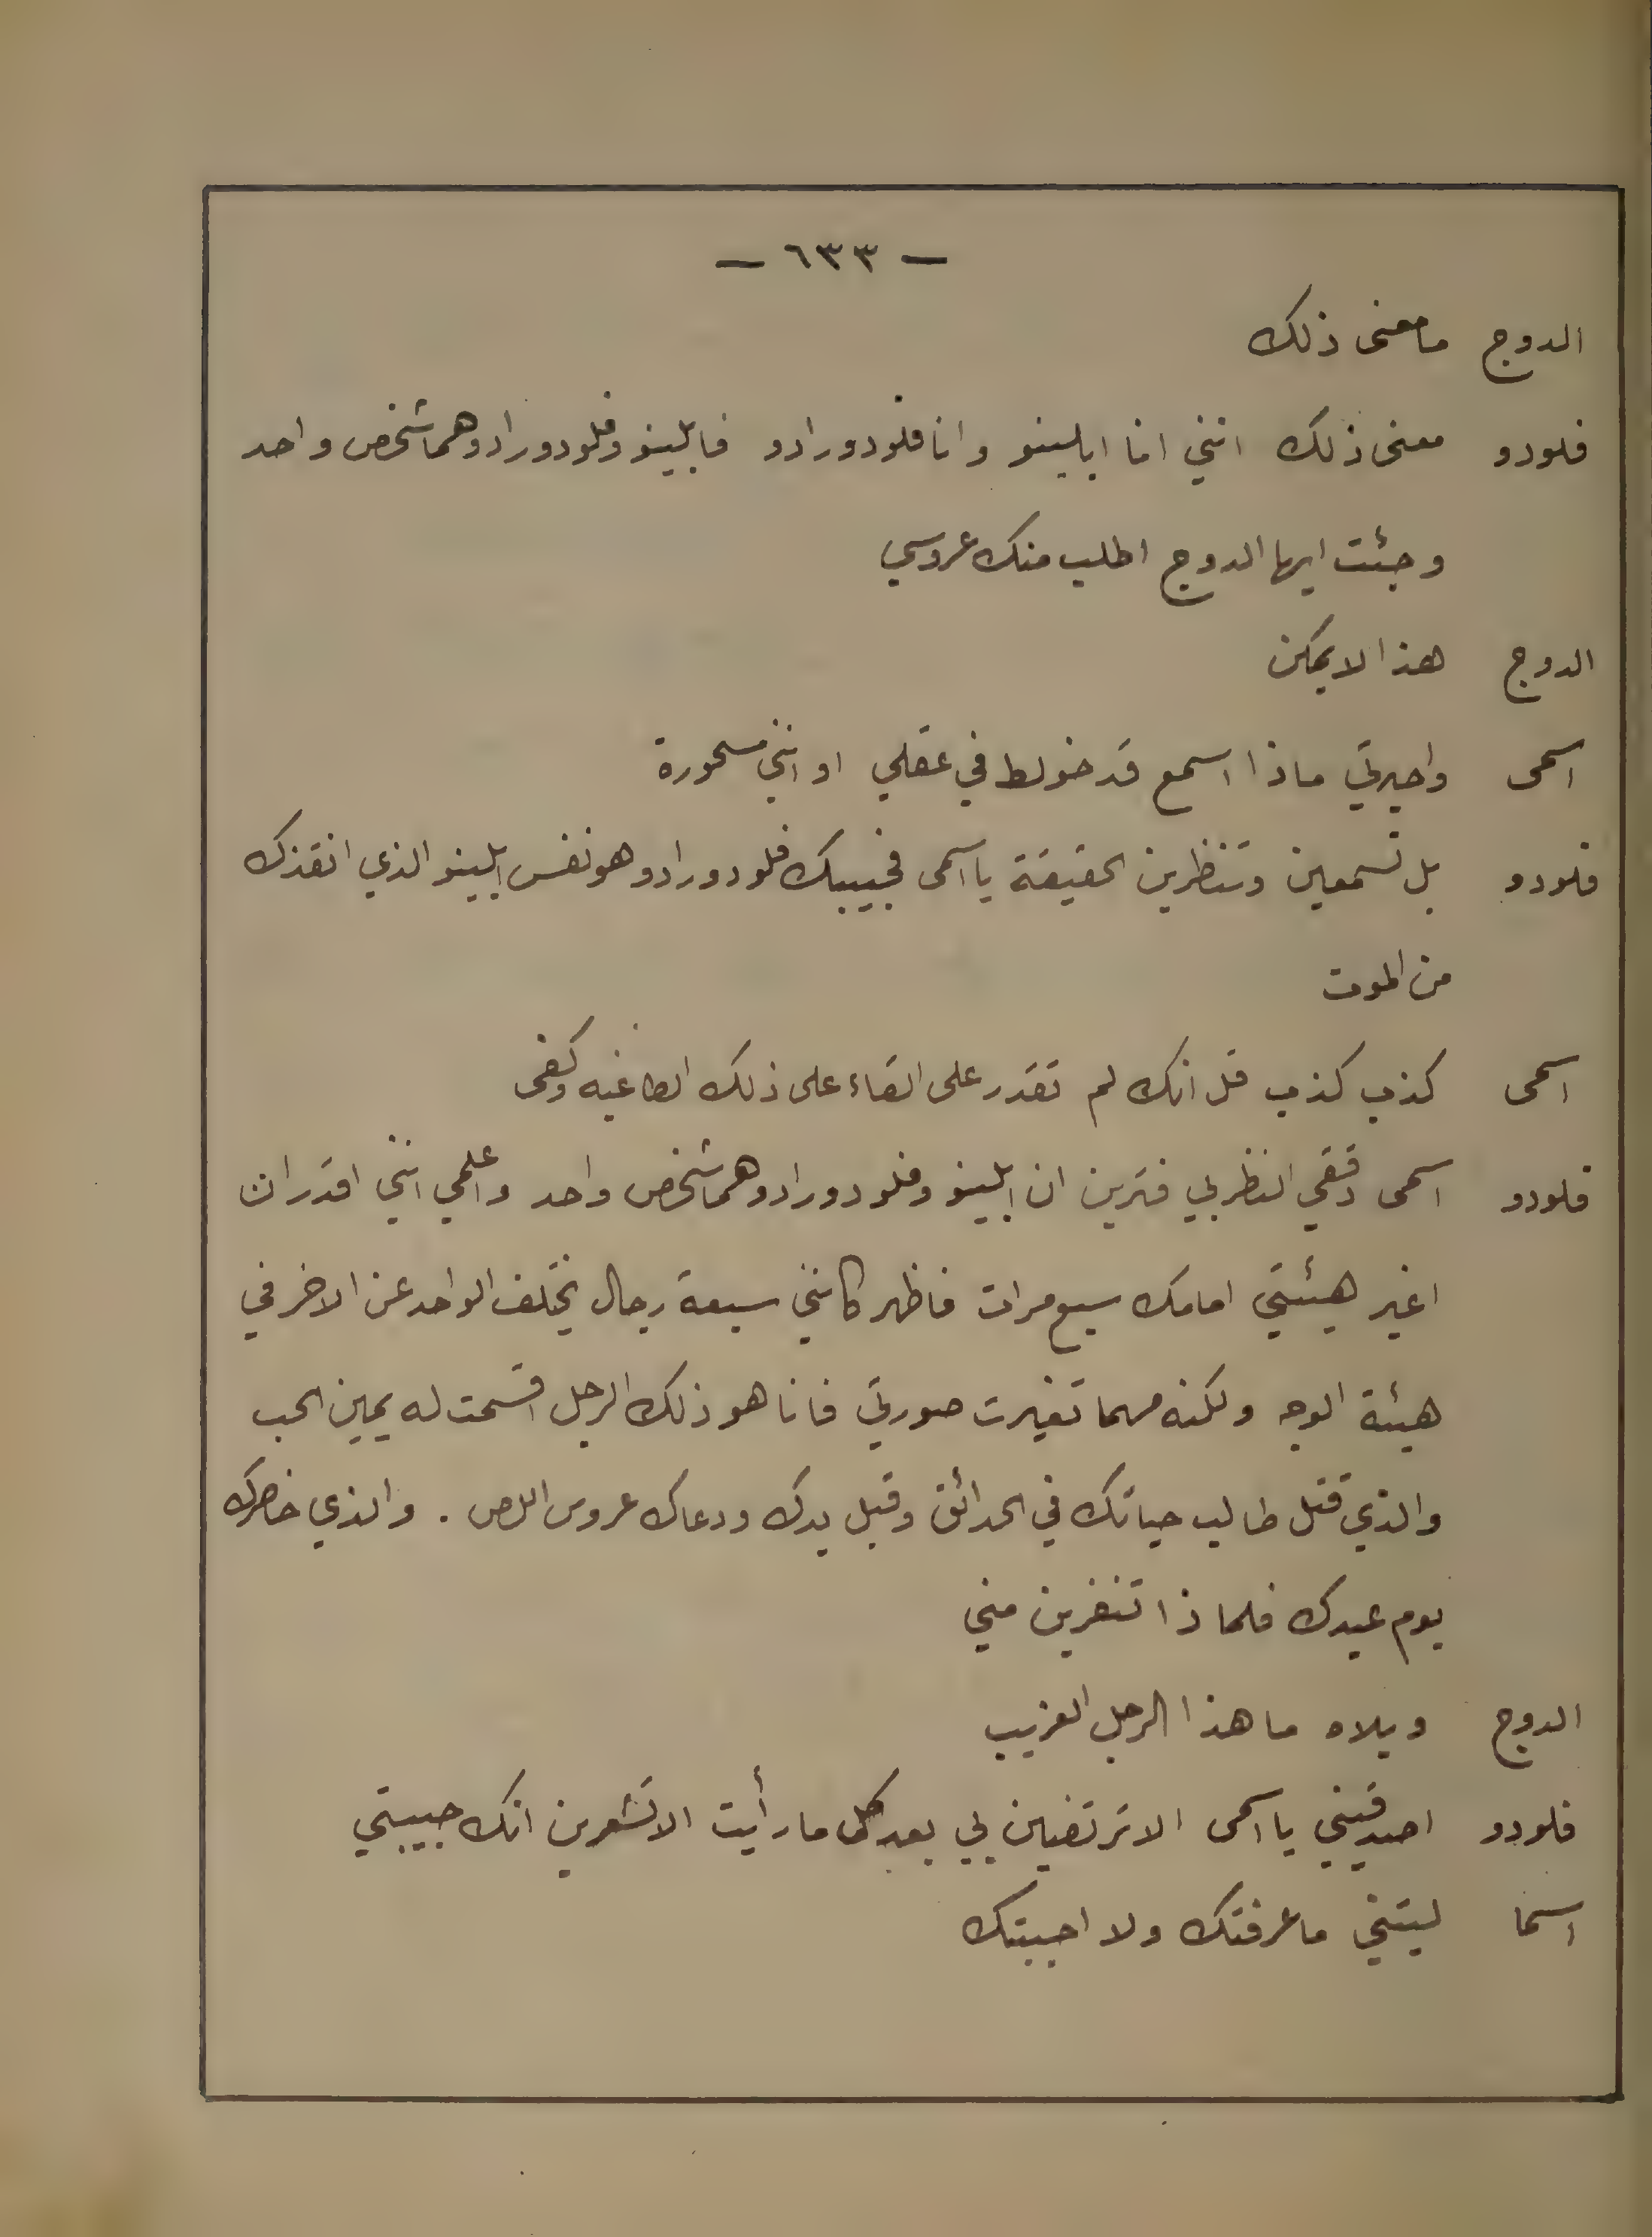 — ٦٣٣ —
الدوج ما معنى ذلك
فلودو معنى ذلك انني انا ابلينو وانا فلودورادو فابلينو وفلودورادو هما شخص واحد
وجئت ايها الدوج اطلب منك عروسي
الدوج هذا لا يمكن
اسمى واحيرتي ماذا اسمع قد خولط في عقلي او انني مسحورة
فلودو بل تسمعين وتنظرين الحقيقة يا اسمى فحبيبك فلودورادو هو نفس ابلينو الذي انقذك
من الموت
اسمى كذب كذب قل انك لم تقدر على القاء على ذلك الطاغيه وكفى
فلودو اسمى دققي النظر بي فترين ان ابلينو وفلودورادو هما شخص واحد واعلمي انني اقدر ان
اغير هيئتي امامك سبع مرات فاظهر كانني سبعة رجال يختلف الواحد عن الاخر في
هيئة الوجه ولكنه مهما تغيرت صورتي فانا هو ذلك الرجل اقسمت له يمين الحب
والذي قتل طالب حياتك في الحدائق وقبل يدك ودعاك عروس اللص . والذي خاصرك
يوم عيدك فلماذا تنفرين مني
الدوج ويلاه ما هذا الرجل الغريب
فلودو اصدقيني يا اسمى الا ترتضين بي بعد كل ما رأيت الا تشعرين انك حبيبتي
اسما ليتني ما عرفتك ولا احببتك